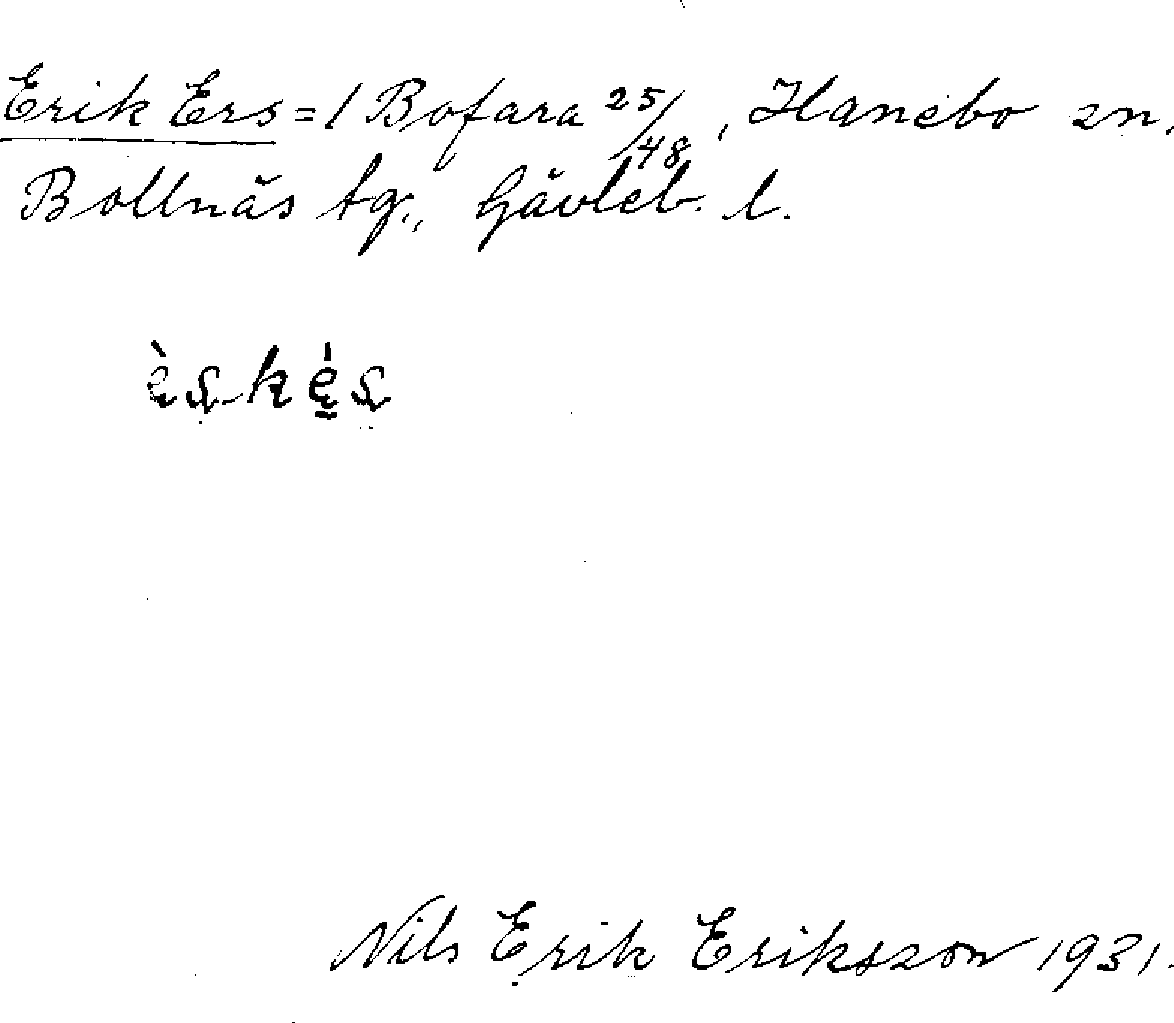 Erik Ers = / Bofara 25/48, Hanebo sn.
Bollnäs tg., Gävleb. l.
èskés
Nils Erik Eriksson 1931.